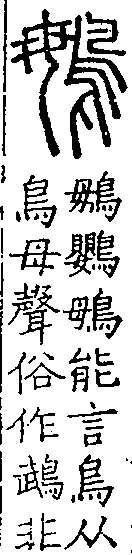 䳇
䳇鸚䳇能言鳥从
鳥母聲俗作鵡非